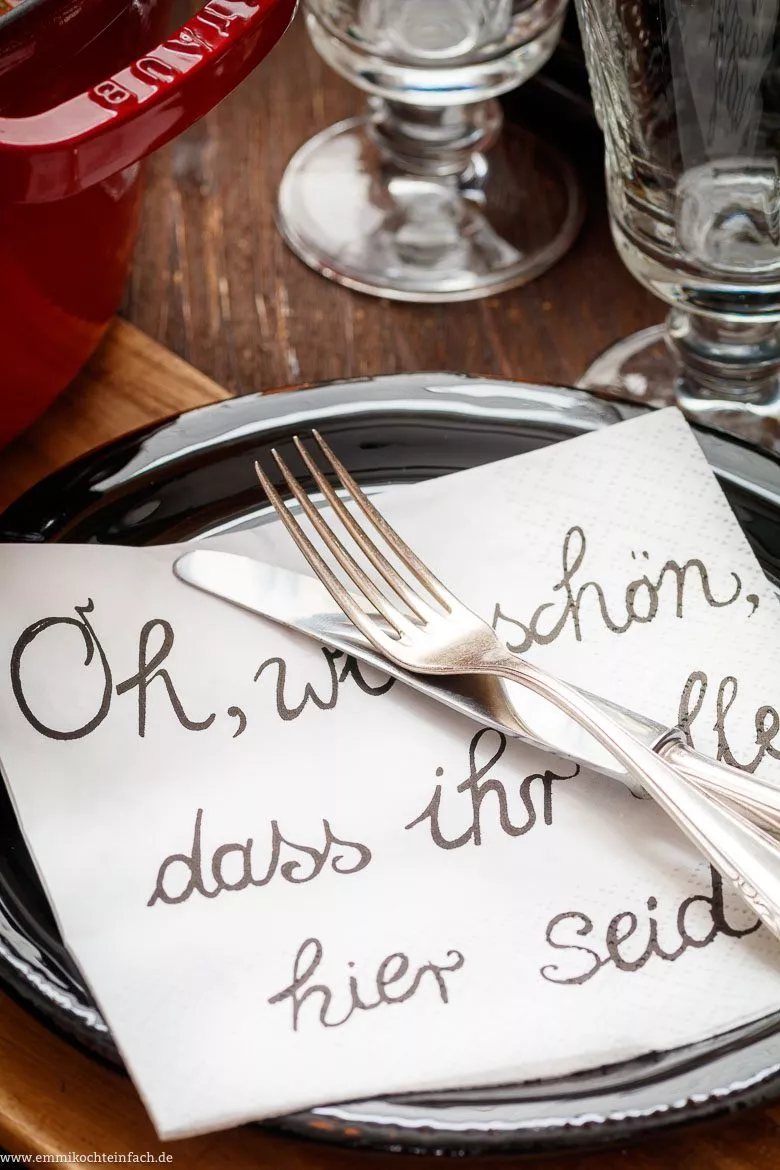 STAUB
Oh, wie schön,
dass ihr lle
hier seid
www.emmikochteinfach.de